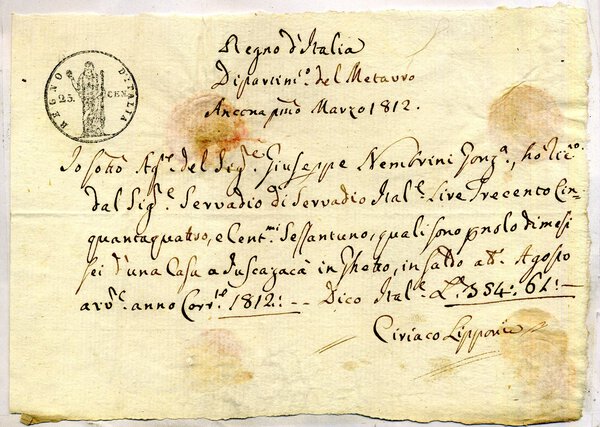 REGNO D'ITALIA
25. CEN.
Regno d'Italia
Dipartim.º del Metauro
Ancona pmo Marzo 1812.
Io sotto Ag.e del Sig.e Giuseppe Nembrini Gonz.a, ho
dal Sig.e Servadio di Servadio Ital.e Lire Trecento Cin=
quantaquattro, e Cent.mi Sessantuno, quali sono p nolo di mesi
sei d'una Casa a in Ghetto, in Saldo Agosto
anno Corr.te 1812:- -- Dico Ital.e L.e 354:61:-
Ciriaco Lipponi